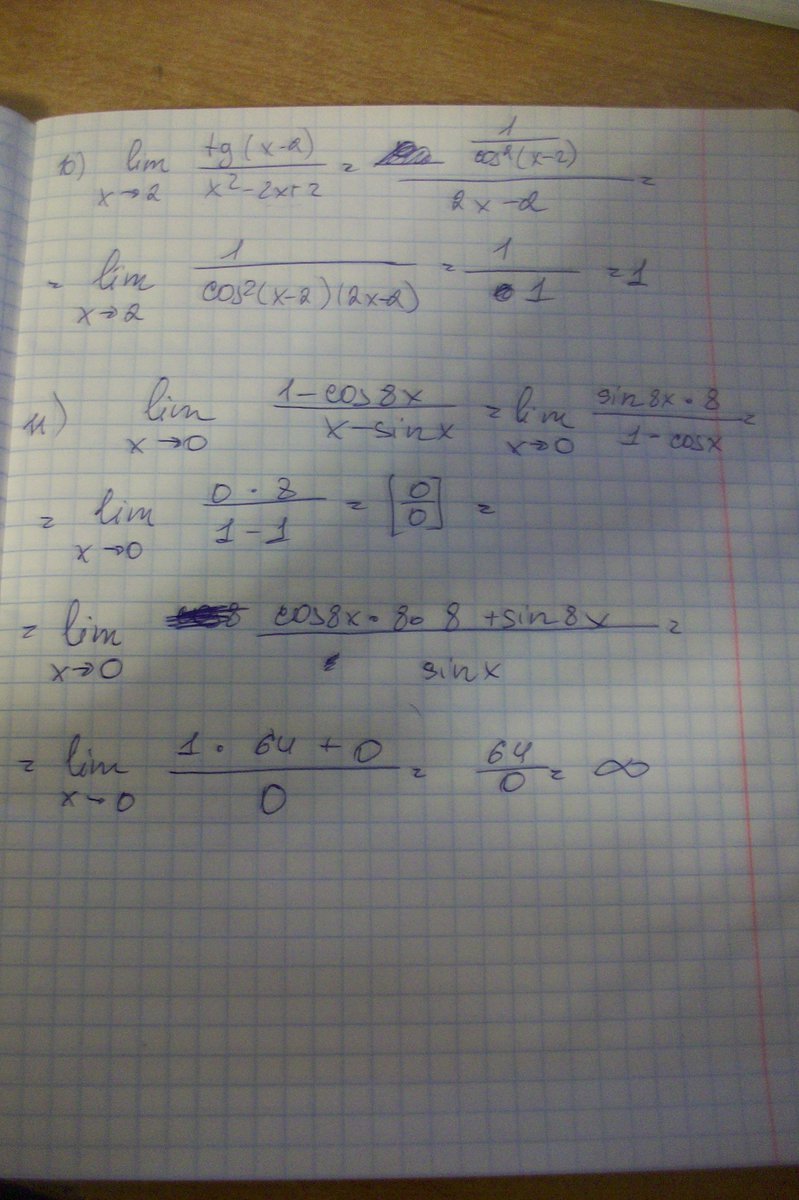 10) lim x→2 tg(x-2) / x²-2x+2 = 1/cos²(x-2) / 2x-2 =
= lim x→2 1 / cos²(x-2)(2x-2) = 1 / 1 = 1
11) lim x→0 1-cos8x / x-sinx = lim x→0 sin8x·8 / 1-cosx =
= lim x→0 0·8 / 1-1 = [0/0] =
= lim x→0 cos8x·8·8+sin8x / sinx =
= lim x→0 1·64+0 / 0 = 64/0 = ∞